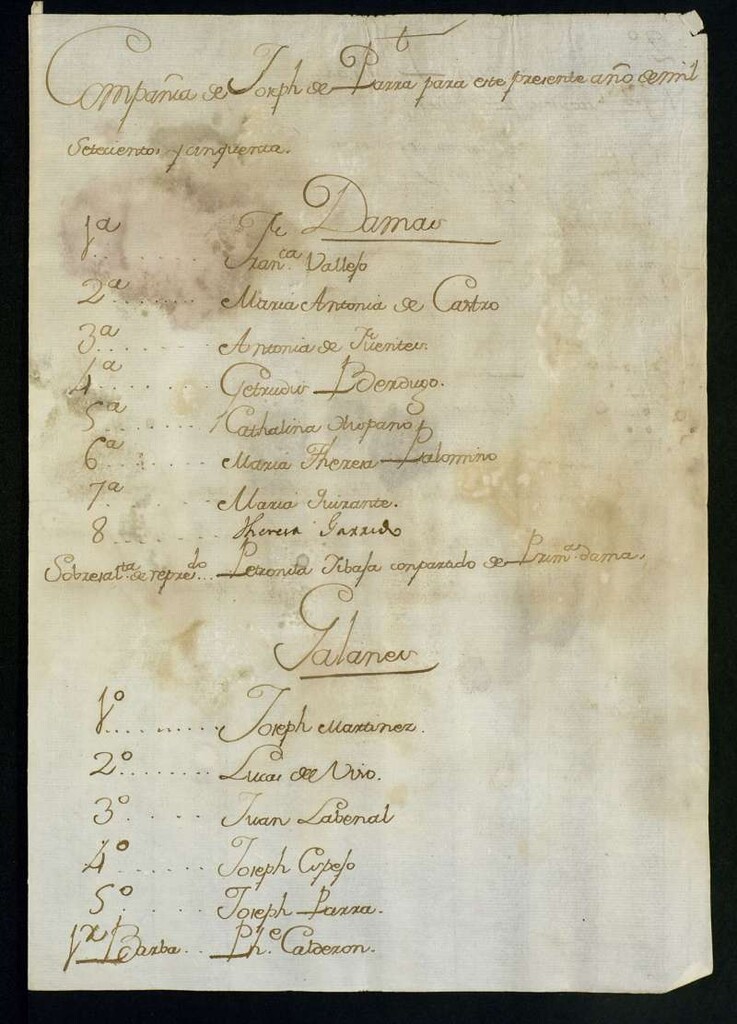 t
Compañia de Joseph de Parra para este presente año de mil
Setecientos, y cinquenta.
Damas
1ª ........ Franca. Vallejo
2ª ........ Maria Antonia de Castro
3ª ........ Antonia de Fuentes.
4ª ........ Getrudis Berdugo.
5ª ........ Cathalina Mispano,
6ª ........ Maria Theresa Palomino
7ª ........ Maria Guirante.
8 ........ Theresa Garrido
Sobresalta. de repredo... Petronila Jibaja con partido de Prima. dama.
Galanes
1º ........ Joseph Martinez.
2º ........ Lucas del Vivo.
3º ........ Juan Labenal
4º ........ Joseph Espejo
5º ........ Joseph Parra.
1r Barba .. Phe. Calderon.